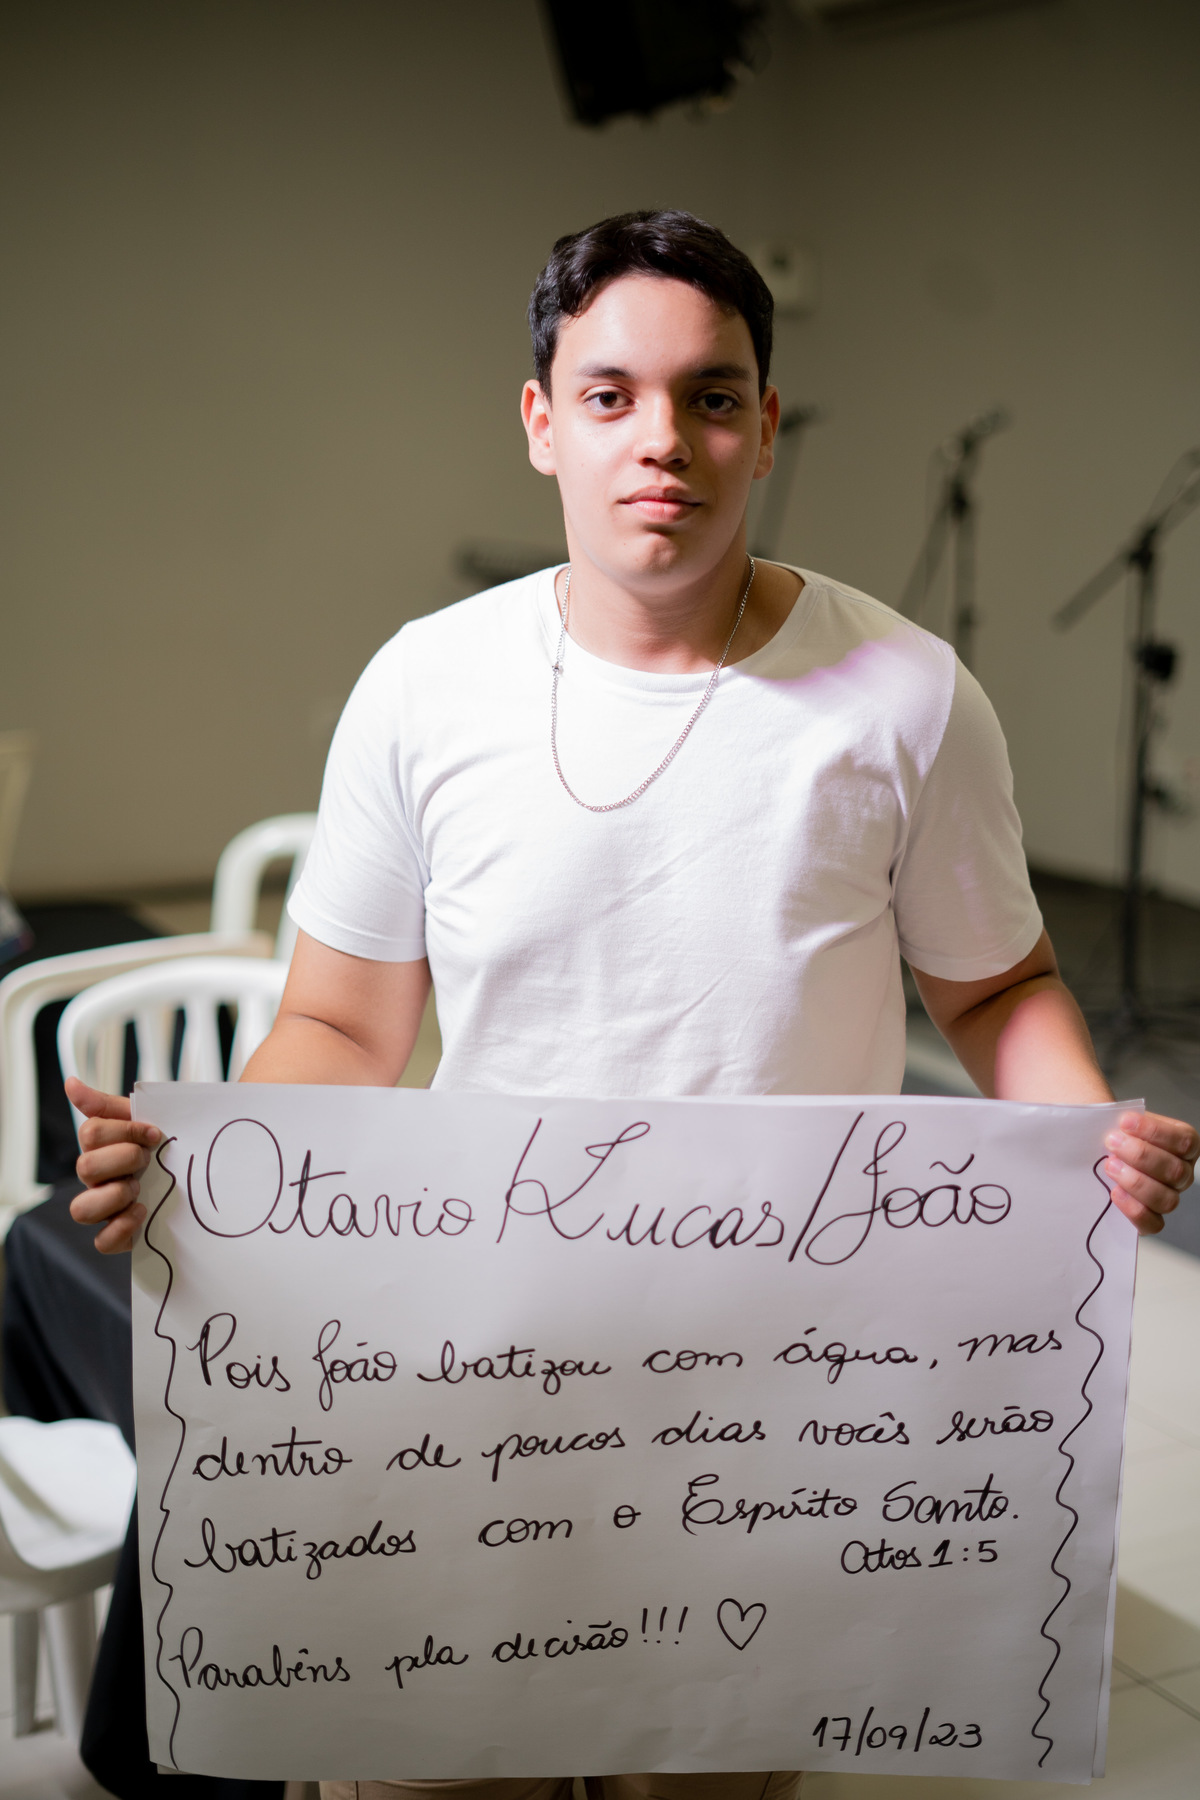 Otavio/Lucas/João
Pois João batizou com água, mas
dentro de poucos dias vocês serão
batizados com o Espírito Santo.
Atos 1:5
Parabéns pela decisão!!! ♡
17/09/23